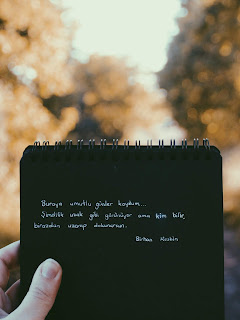 Buraya umutlu günler koydum...
Şimdilik uzak gibi görünüyor ama kim bilir,
birazdan uzanıp dokunursun.
Birhan Keskin